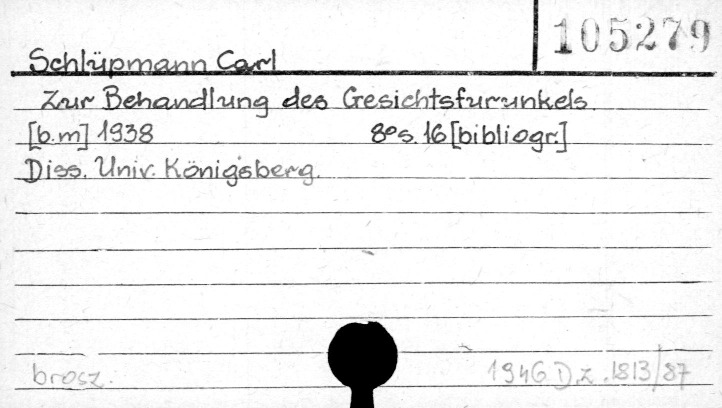 105279
Schlüpmann Carl
Zur Behandlung des Gesichtsfurunkels.
[b.m] 1938 8° s. 16 [bibliogr.]
Diss. Univ. Königsberg.
brosz. 1946.D.z.1813/87